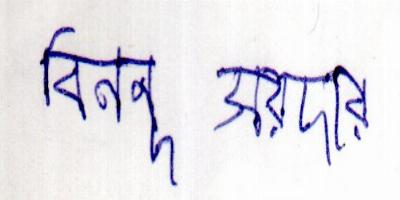 বিনন্দ সরদার